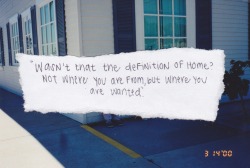 "Wasn't that the definition of Home?
Not where you are from, but where you
are wanted"
3 14'00